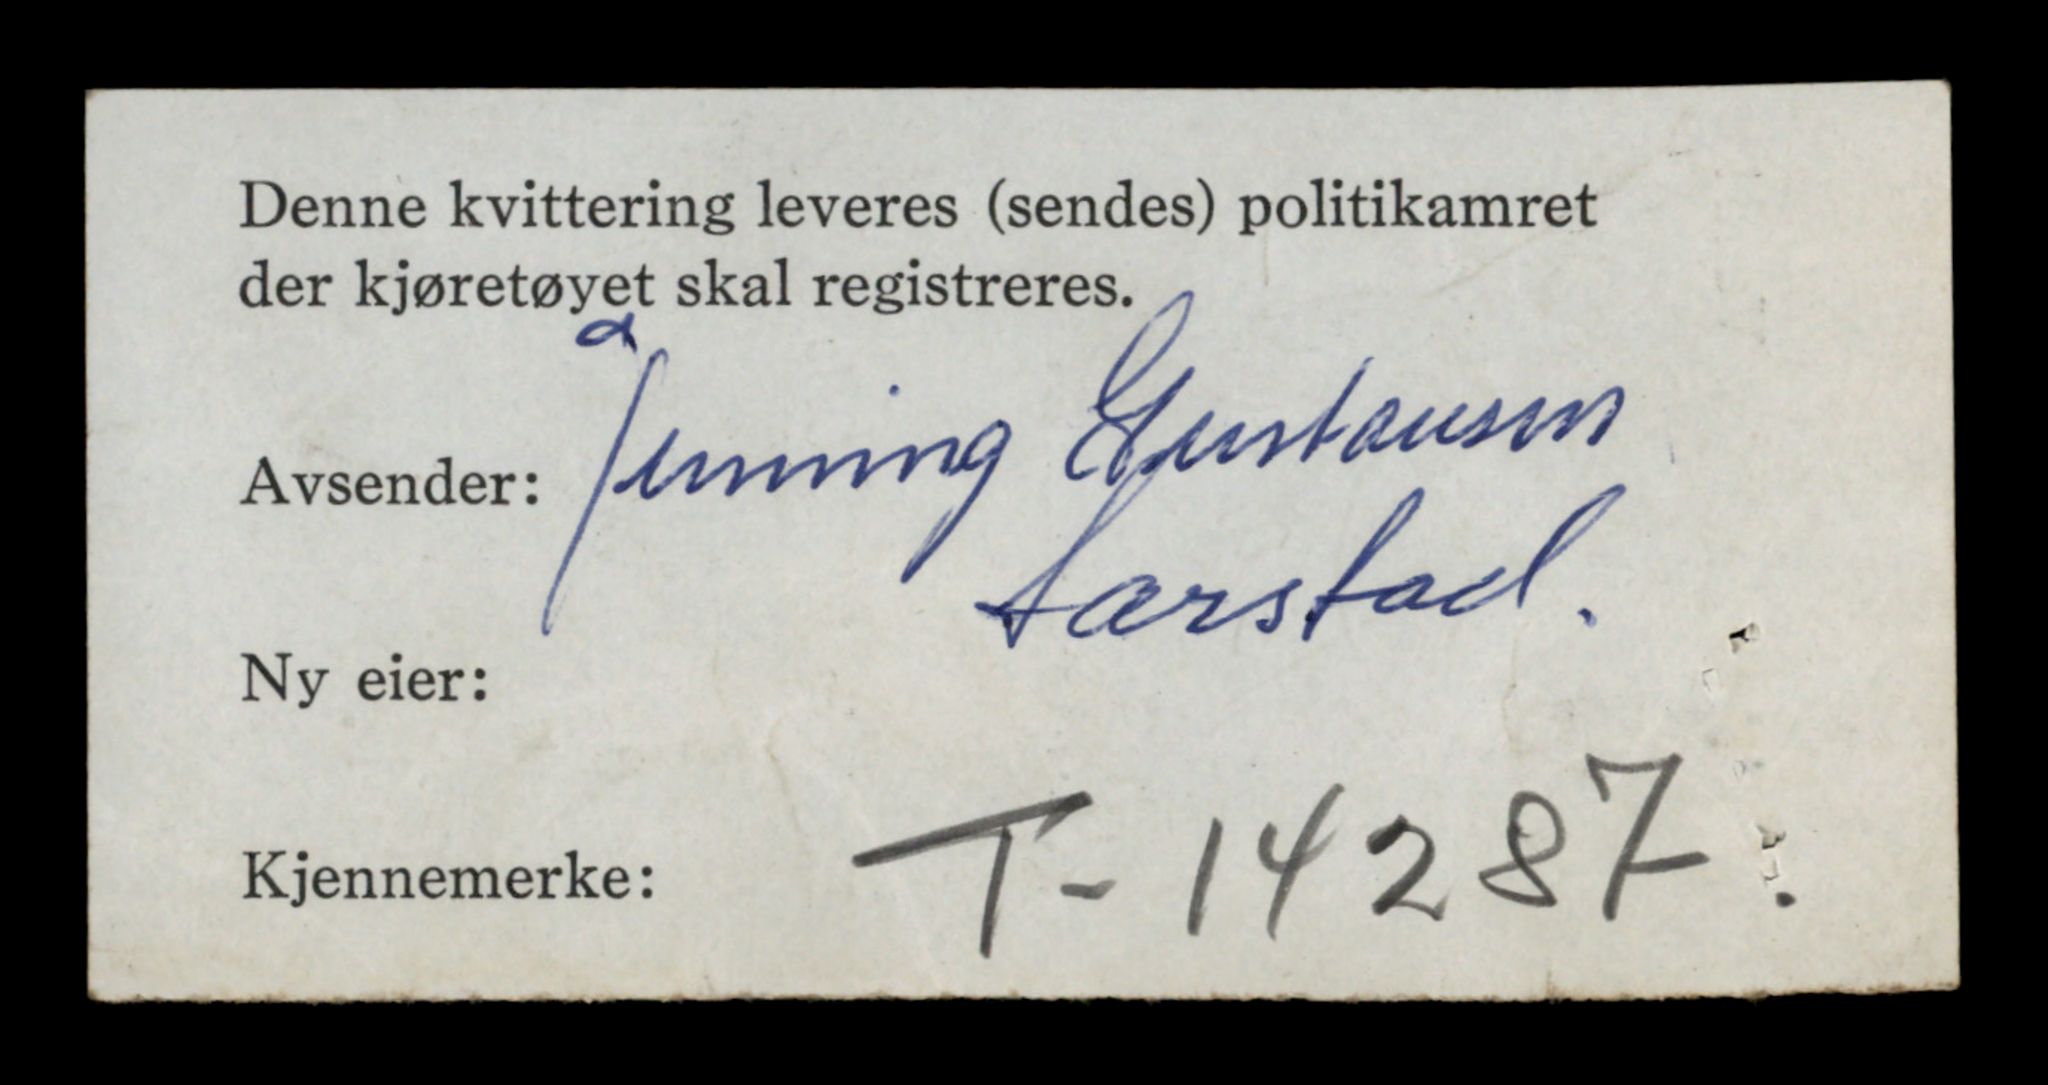 Denne kvittering leveres (sendes) politikamret
der kjøretøyet skal registreres.
Avsender: Jenning Gustavsen
Tærstad.
Ny eier:
Kjennemerke: T-14287.